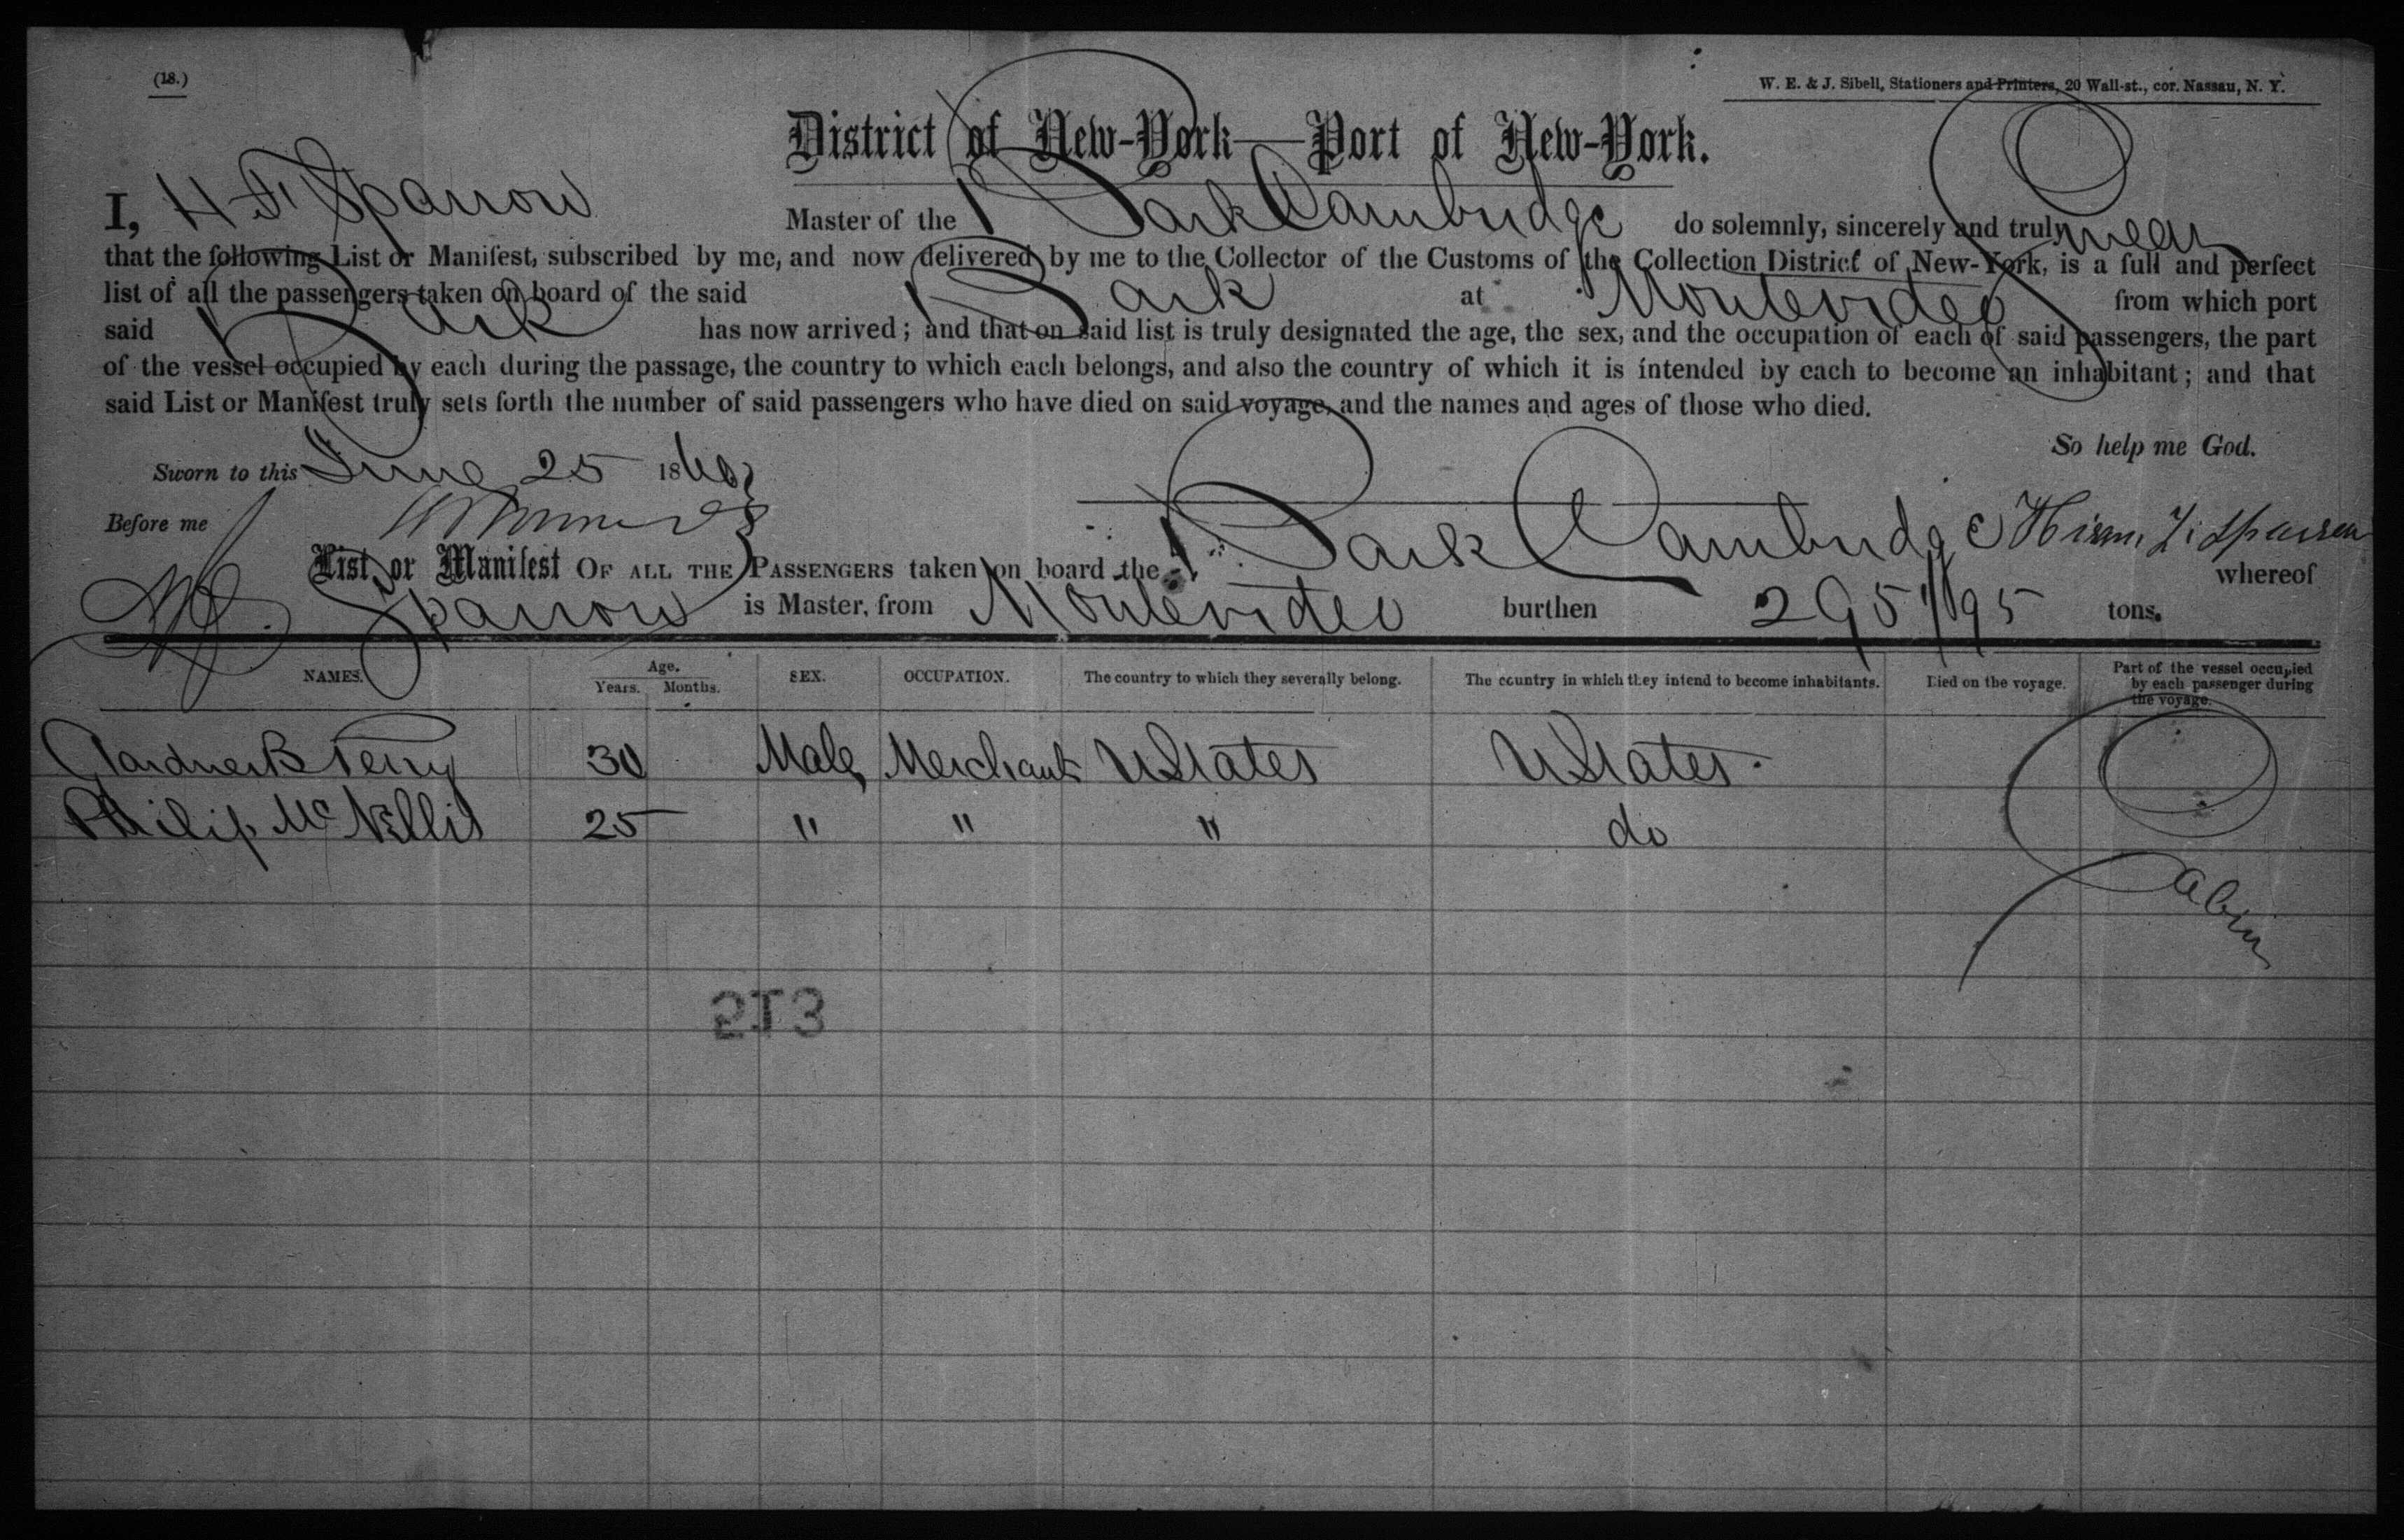 (18.)
W. E. & J. Sibell, Stationers and Printers, 20 Wall-st., cor. Nassau, N. Y.
District of New-York—Port of New-York.
I, H. F. Sparrow Master of the Bark Cambridge do solemnly, sincerely and truly swear
that the following List or Manifest, subscribed by me, and now delivered by me to the Collector of the Customs of the Collection District of New-York, is a full and perfect
list of all the passengers taken on board of the said Bark at Montevideo from which port
said Bark has now arrived; and that on said list is truly designated the age, the sex, and the occupation of each of said passengers, the part
of the vessel occupied by each during the passage, the country to which each belongs, and also the country of which it is intended by each to become an inhabitant; and that
said List or Manifest truly sets forth the number of said passengers who have died on said voyage, and the names and ages of those who died.
So help me God.
Sworn to this June 25 1860
Before me
Hiram F. Sparrow
List or Manifest OF ALL THE PASSENGERS taken on board the Bark Cambridge whereof
Sparrow is Master, from Montevideo burthen 295 /95 tons.
NAMES. Age. Years. Months. SEX. OCCUPATION. The country to which they severally belong. The country in which they intend to become inhabitants. Died on the voyage. Part of the vessel occupied by each passenger during the voyage.
Gardner B Perry 30 Male Merchant U States U States
Philip McNellis 25 " " " do
Cabin
213